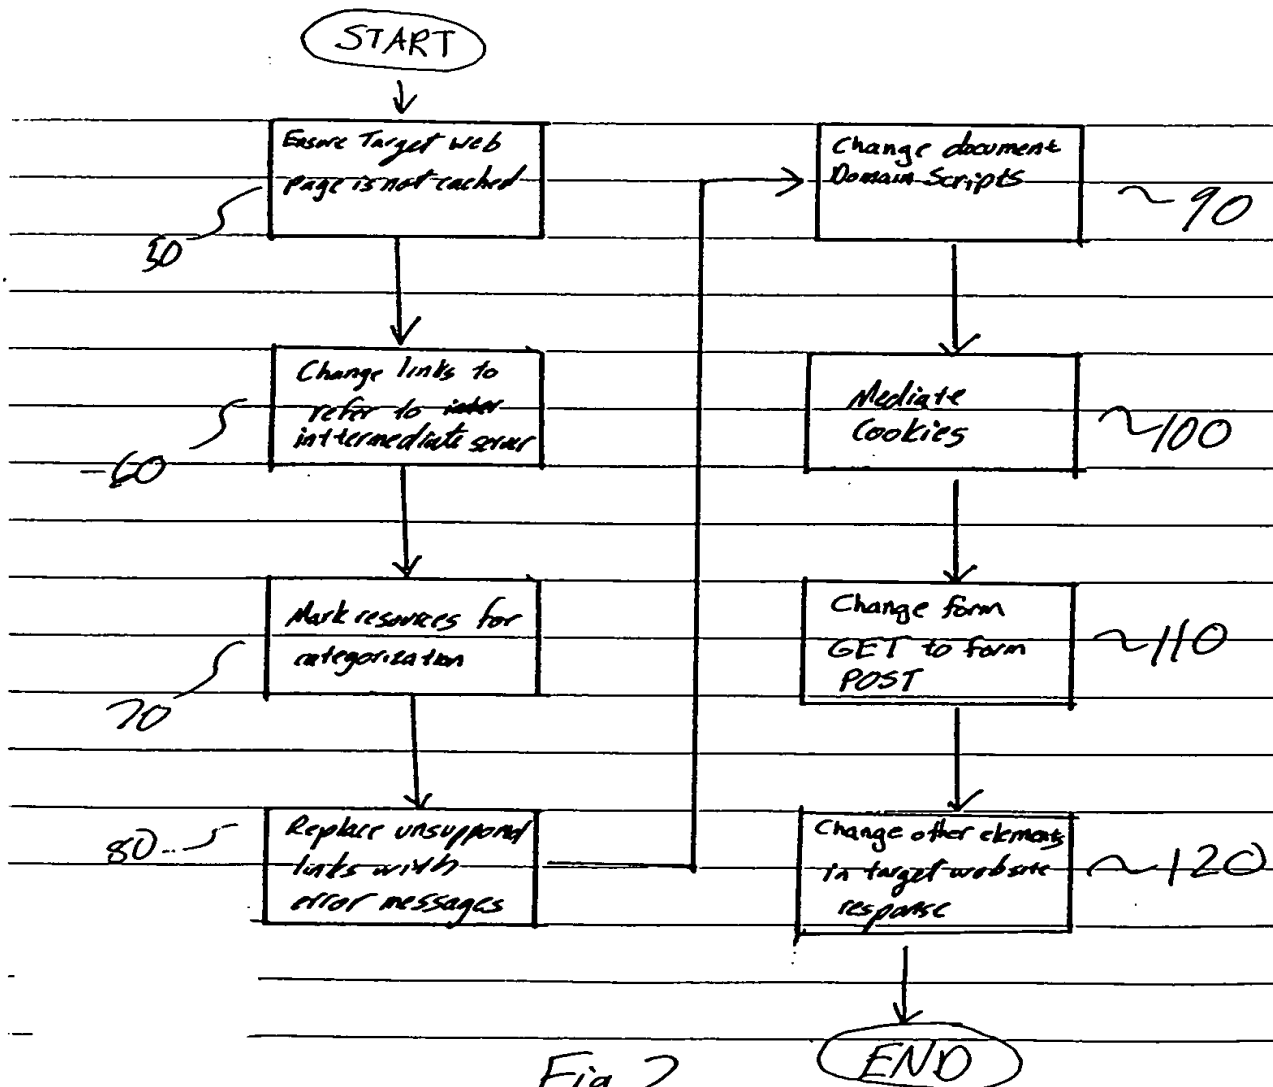 START
Ensure Target web
page is not cached
50
Change links to
refer to inter
inttermediate server
60
Mark resources for
categorization
70
Replace
links with
error messages
80
Change document
Domain Scripts
90
Mediate
Cookies
100
Change form
GET to form
POST
110
Change other elements
in target website
response
120
END
Fig 2